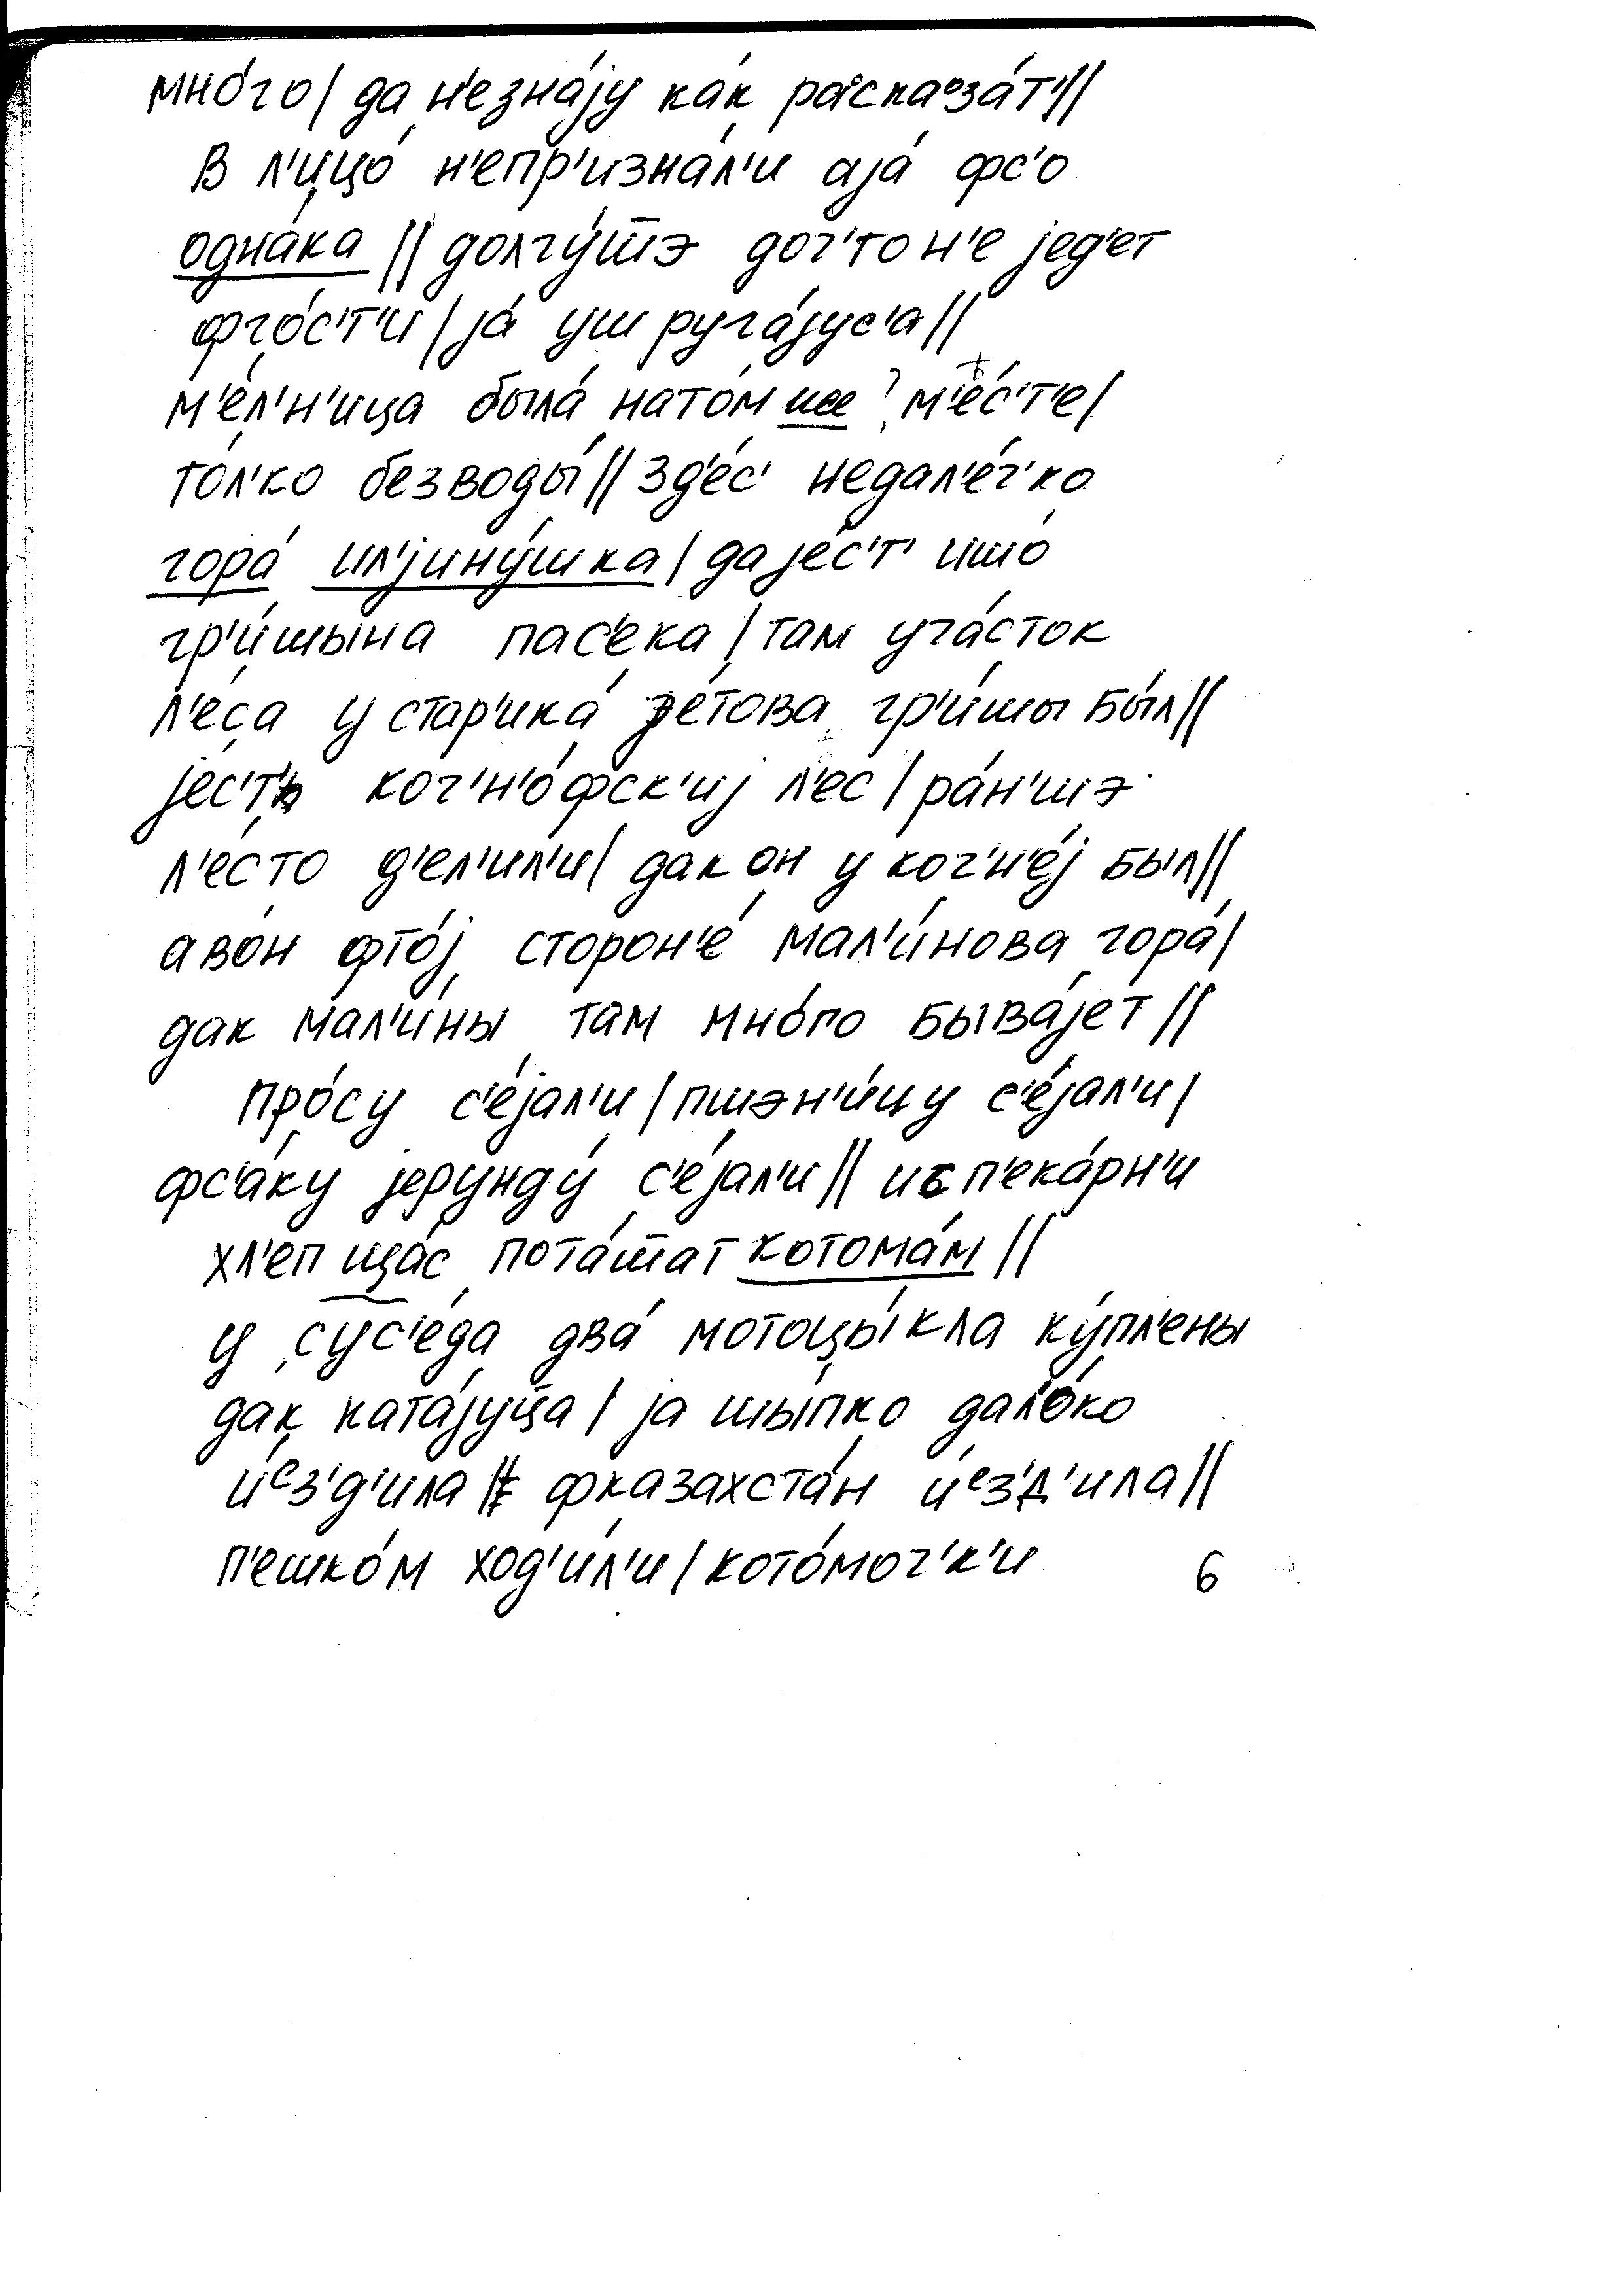 мно́го / да н'езна́jу ка́к раᵒсkаᵒза́т' //
в л'ицо́ н'епр'изна́л'и аjа́ фс'о
одна́ка // долгу́ш̅э доч'то н'е jед'ет
фго́с'т'и / jа́ уш руга́jус'а //
м'е́л'н'ица была́ нато́м ише ? м'е́с'т'е /
то́л'ко безводы́ // зд'е́с' недал'е́ч'ко
гора́ ил'jину́шка / да jе́с'т' ишо́
гр'и́шына пас'ека / там уча́сток
л'е́са у стар'ика́ зе́това гр'и́шы бы́л //
jес'т'ь коч'н'о́фск'иj л'ес / ра́н'шэ
л'е́сто д'ел'ил'и / дак он у коч'н'е́j был //
а во́н фто́j сторон'е́ мал'и́нова гора́ /
дак мал'и́ны там мно́го быва́jет //
про́су с'е́jал'и / пшэн'и́цу с'е́jал'и /
фс'а́ку jерунду́ с'е́jал'и // ис п'ека́рн'и
хл'еп ща́с пота́ш̅ат котома́м //
у сус'е́да два́ мотоцы́кла ку́пл'ены
дак ката́jуц̅а / jа шы́пко дал'о́ко
и́ᵉз'д'ила // фказахста́н и́ᵉз'д'ила //
п'ешко́м ход'и́л'и / кото́моч'к'и
6